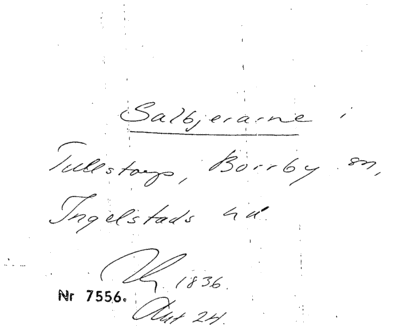 Salbjerarne i
Tullstorp, Borrby sn,
Ingelstads hd.
1836.
Nr 7556.
Aut 24.